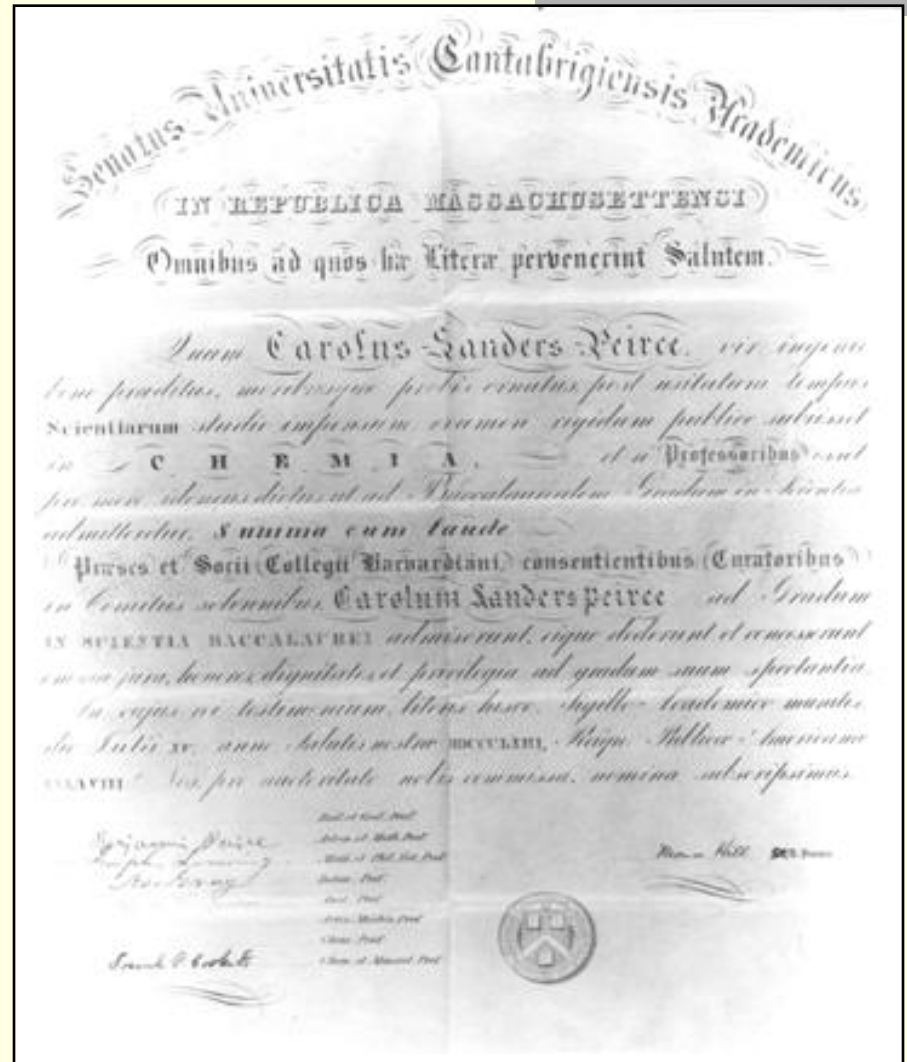 Senatus Universitatis Cantabrigiensis Academicus
IN REPUBLICA MASSACHUSETTENSI
Omnibus ad quos hæ Literæ pervenerint Salutem.
Quum Carolus Sanders Peirce, vir ingenio
bene præditus, moribusque probis ornatus, post usitatum tempus
Scientiarum studio impensum examen rigidum publice subiisset
in CHEMIA, et a Professoribus esset
pro more idoneus dictus ut ad Baccalaurealem Gradum in Scientia
admitteretur, Summa cum laude
Præses et Socii Collegii Harvardiani, consentientibus Curatoribus
in Comitiis solennibus, Carolum Sanders Peirce ad Gradum
IN SCIENTIA BACCALAUREI admiserunt, eique dederunt et concesserunt
omnia jura, honores, dignitates, et privilegia ad gradum suum spectantia.
In cujus rei testimonium, literis hisce, Sigillo Academico munitis
die Julii XV. anno Salutis nostræ MDCCCLXIII, Reique Publicæ Americanæ
Nos pro auctoritate nobis commissa, nomina subscripsimus.
Benjamin Peirce
Asa Gray
Hill
Prof.
Astron. et Math. Prof.
Math. et Phil. Nat. Prof.
Prof.
Prof.
Prof.
Chem. Prof.
Chem. et Mineral. Prof.